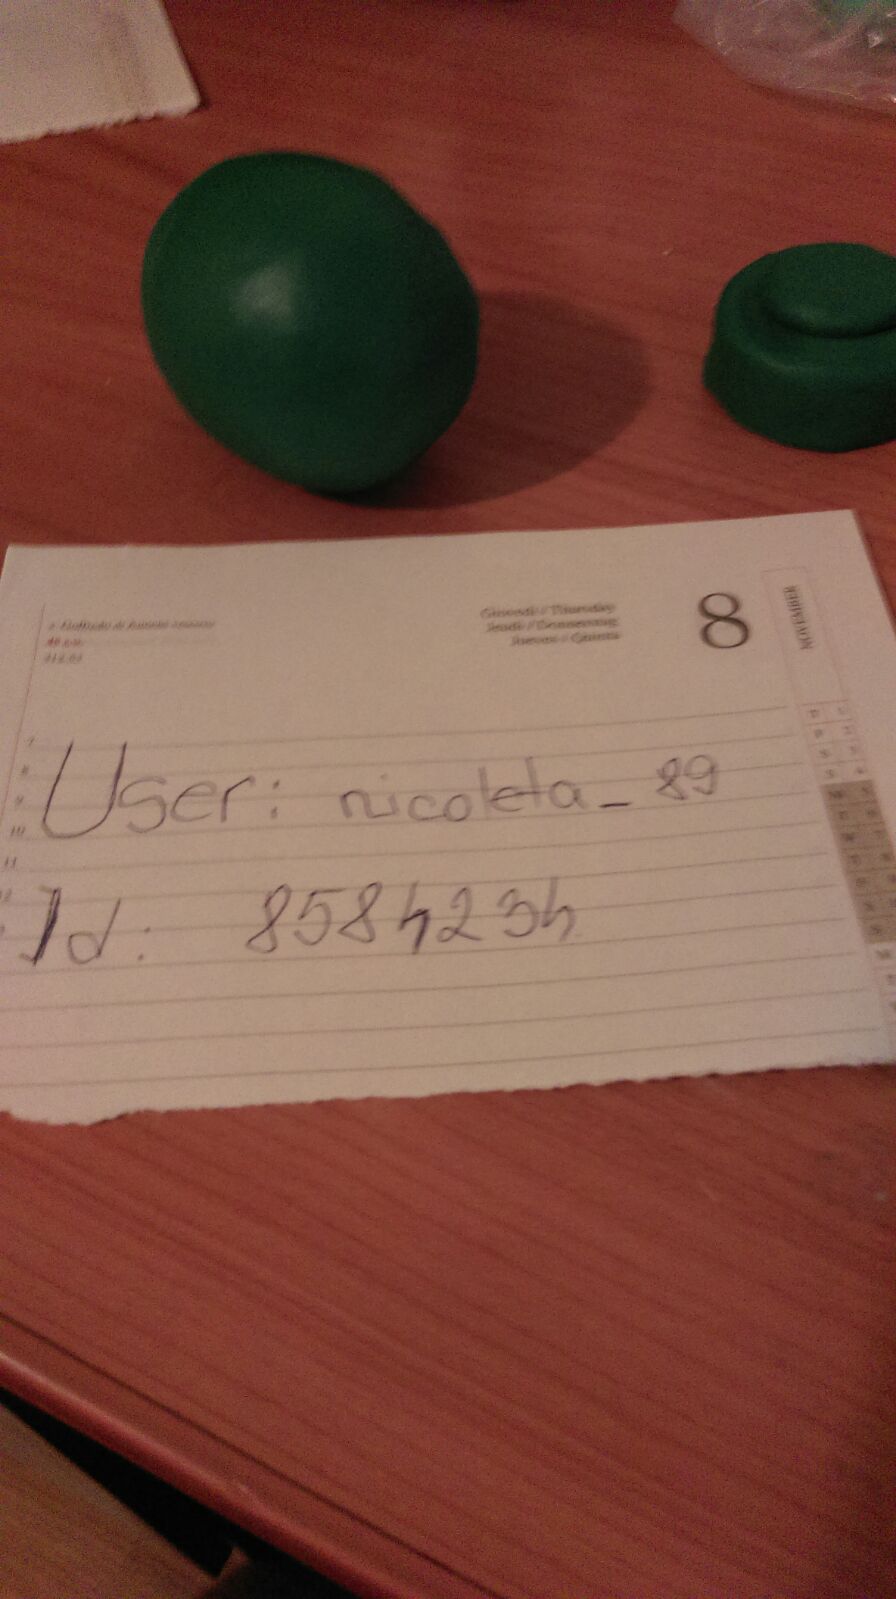 Giovedì / Thursday
Jeudi / Donnerstag
Jueves / Quinta
8
NOVEMBER
7
8
9
10
11
12
User: nicoleta_89
Id: 8584234